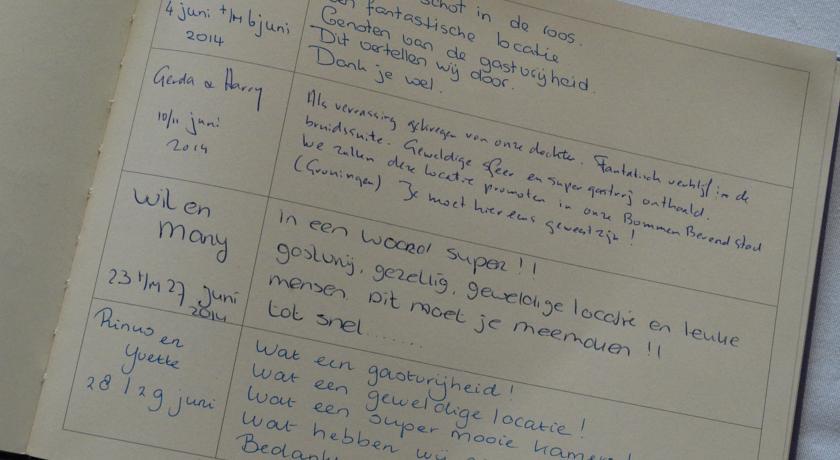 4 juni t/m 6 juni
2014
schot in de roos.
fantastische locatie
Genoten van de gastvrijheid.
Dit vertellen wij door.
Dank je wel.
Gerda & Harry
10/11 juni
2014
Als verrassing gekregen van onze dochter. Fantatisch verblijf in de
bruidssuite. Geweldige sfeer en super gastvrij onthaald.
We zullen deze locatie promoten in onze Bommen Berend stad
(Groningen) Je moet hier eens geweest zijn !
Wil en
Many
23 t/m 27 juni
2014
in een woord super !!
gastvrij, gezellig, geweldige locatie en leuke
mensen. Dit moet je meemaken !!
tot snel........
Rinus en
Yvette
28 / 29 juni
Wat een gastvrijheid !
Wat een geweldige locatie !
Wat een super mooie kamer
Wat hebben wij
Bedankt